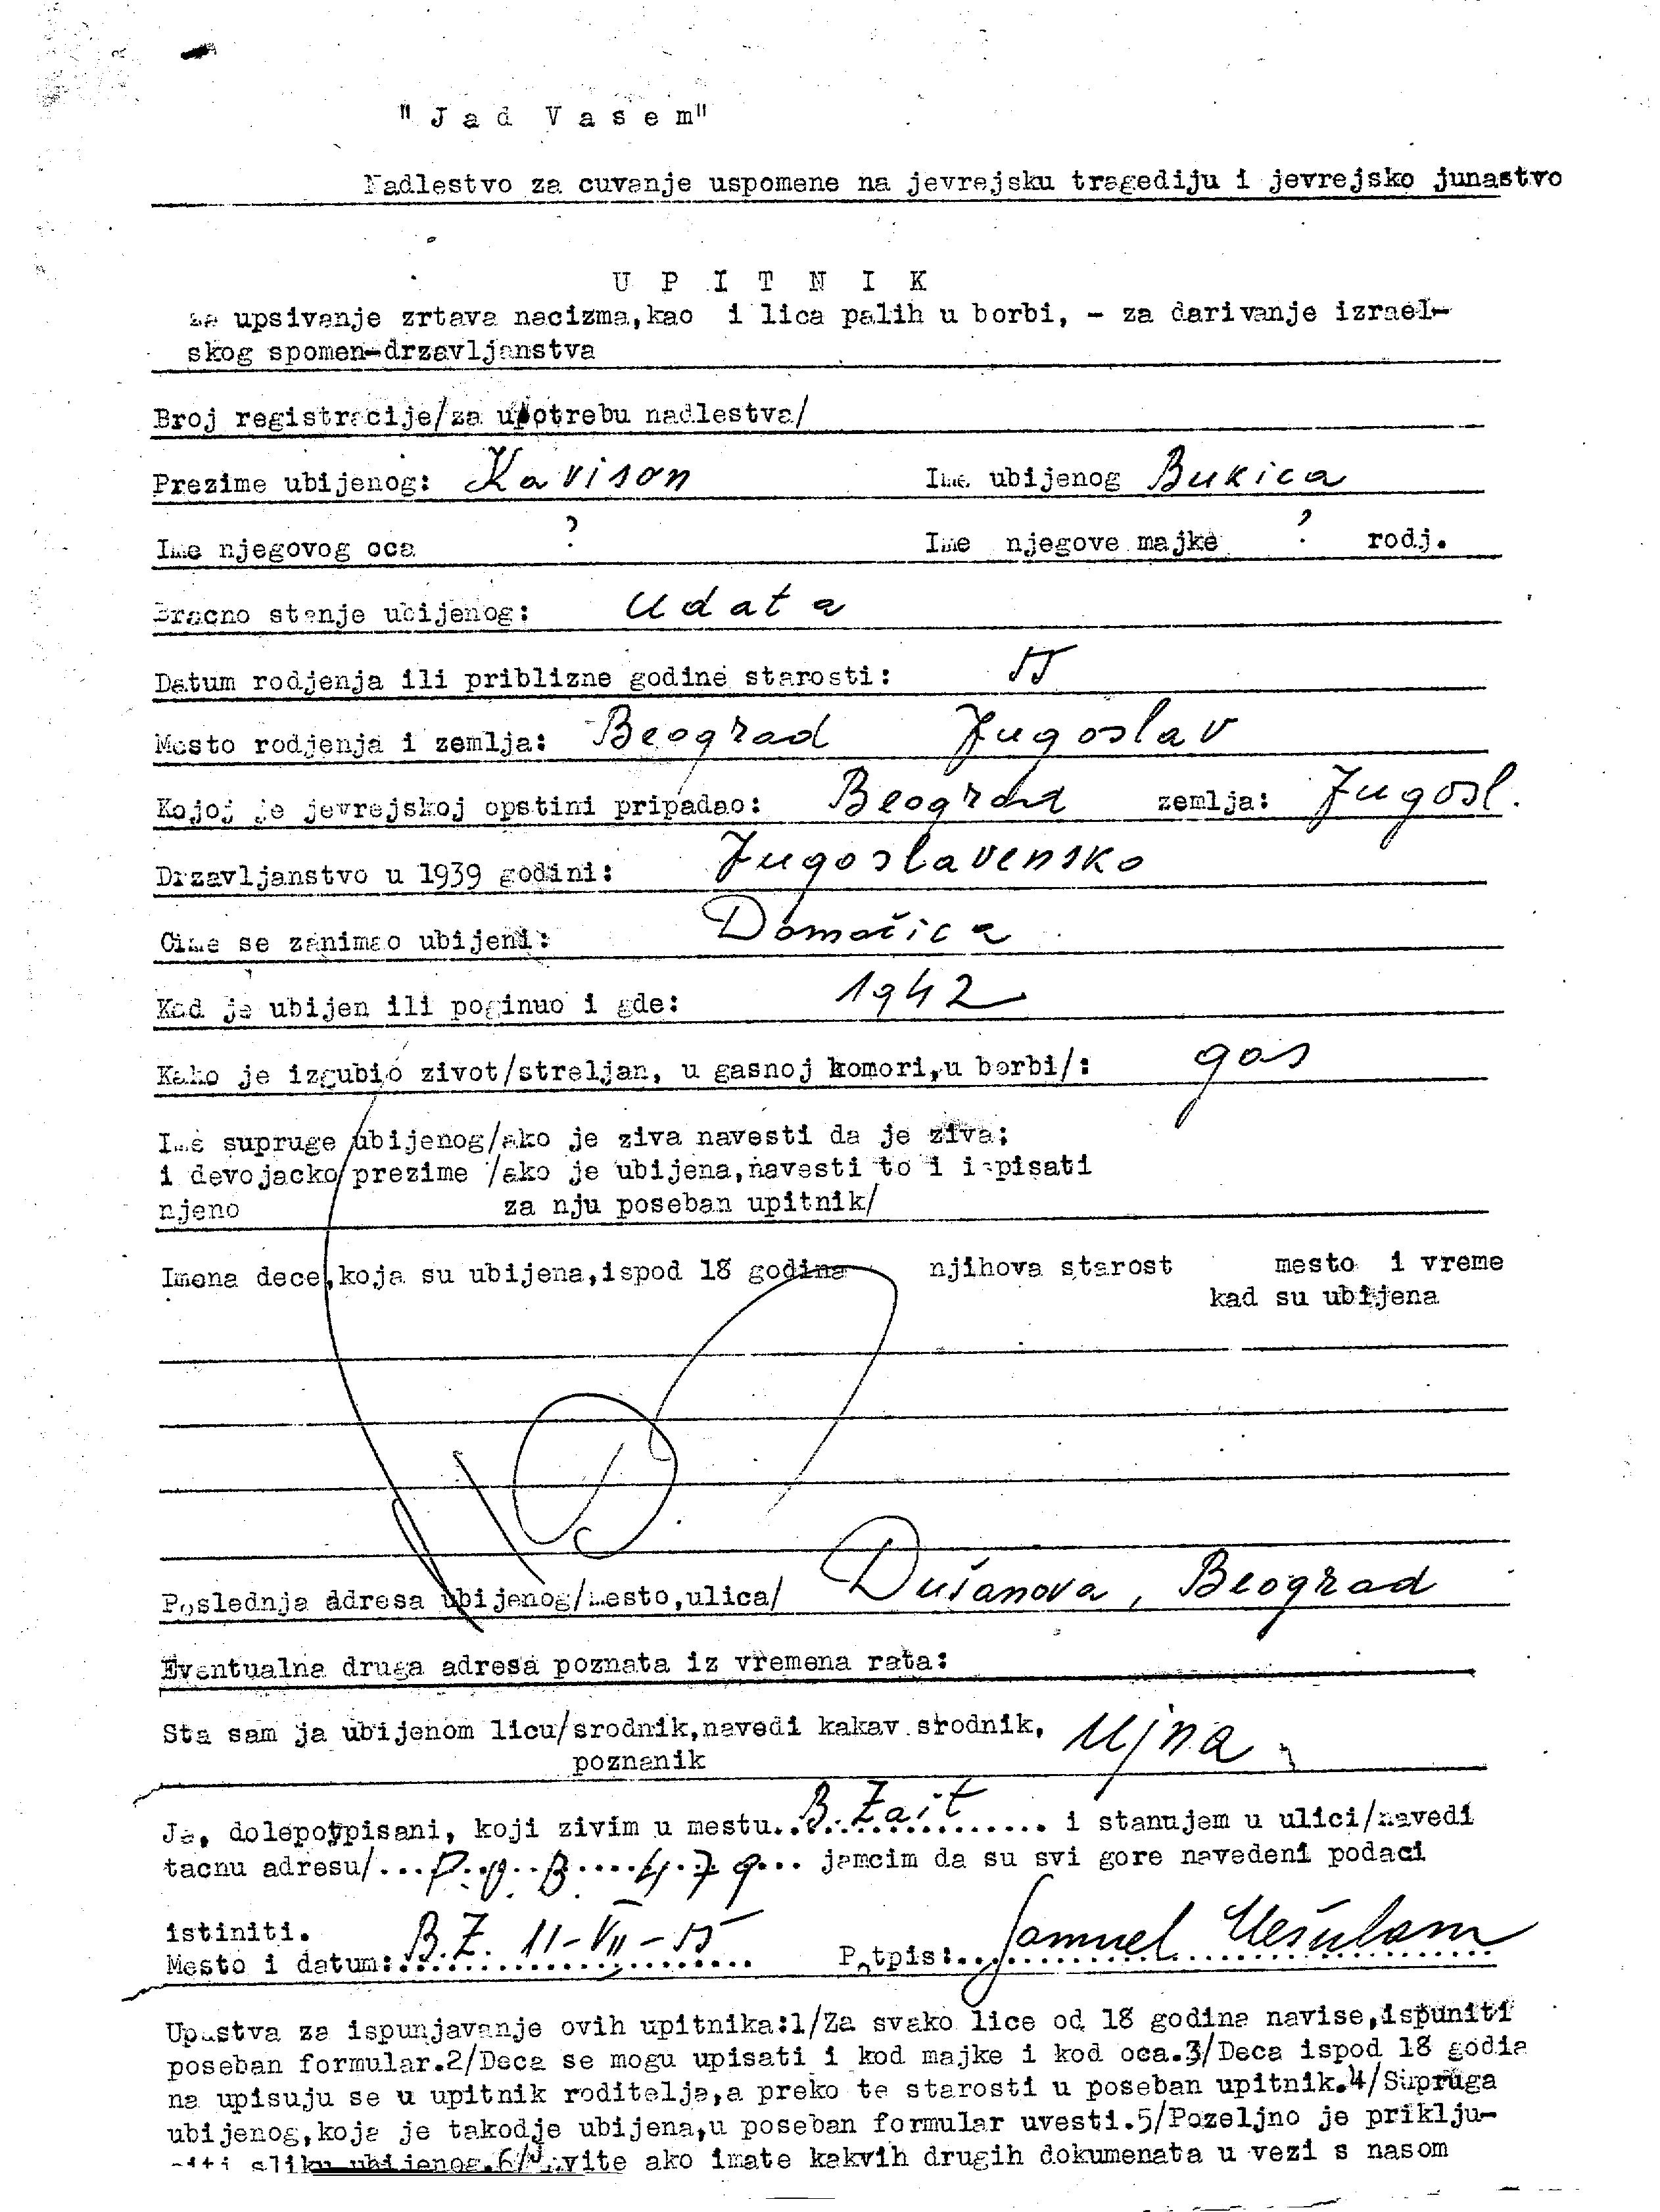 "Jad Vasem"
Nadlestvo za cuvanje uspomene na jevrejsku tragediju i jevrejsko junastvo
UPITNIK
za upsivanje zrtava nacizma,kao i lica palih u borbi, - za darivanje izrael-
skog spomen-drzavljanstva
Broj registracije/za upotrebu nadlestva/
Prezime ubijenog: Kavison Ime ubijenog Bukica
Ime njegovog oca ? Ime njegove majke ? rodj.
Bracno stanje ubijenog: Udata
Datum rodjenja ili priblizne godine starosti: 55
Mesto rodjenja i zemlja: Beograd Jugoslav
Kojoj je jevrejskoj opstini pripadao: Beograd zemlja: Jugosl.
Drzavljanstvo u 1939 godini: Jugoslavensko
Cime se zanimao ubijeni: Domačica
Kad je ubijen ili poginuo i gde: 1942
Kako je izgubio zivot/streljan, u gasnoj komori,u borbi/: gas
Ime supruge ubijenog/ako je ziva navesti da je ziva;
i devojacko prezime /ako je ubijena,navesti to i ispisati
njeno za nju poseban upitnik/
Imena dece,koja su ubijena,ispod 18 godina njihova starost mesto i vreme
kad su ubijena
Poslednja adresa ubijenog/mesto,ulica/ Dušanova, Beograd
Eventualna druga adresa poznata iz vremena rata:
Sta sam ja ubijenom licu/srodnik,navedi kakav srodnik, Ujna
poznanik
Ja, dolepotpisani, koji zivim u mestu..B. Zait...... i stanujem u ulici/navedi
tacnu adresu/...P.O.B....479... jamcim da su svi gore navedeni podaci
istiniti.
Mesto i datum:B.Z. 11-VII-55 Potpis:..Samuel Mešulam
Upustva za ispunjavanje ovih upitnika:1/Za svako lice od 18 godina navise,ispuniti
poseban formular.2/Deca se mogu upisati i kod majke i kod oca.3/Deca ispod 18 godia
na upisuju se u upitnik roditelja,a preko te starosti u poseban upitnik.4/Supruga
ubijenog,koja je takodje ubijena,u poseban formular uvesti.5/Pozeljno je priklju-
citi sliku ubijenog.6/Javite ako imate kakvih drugih dokumenata u vezi s nasom